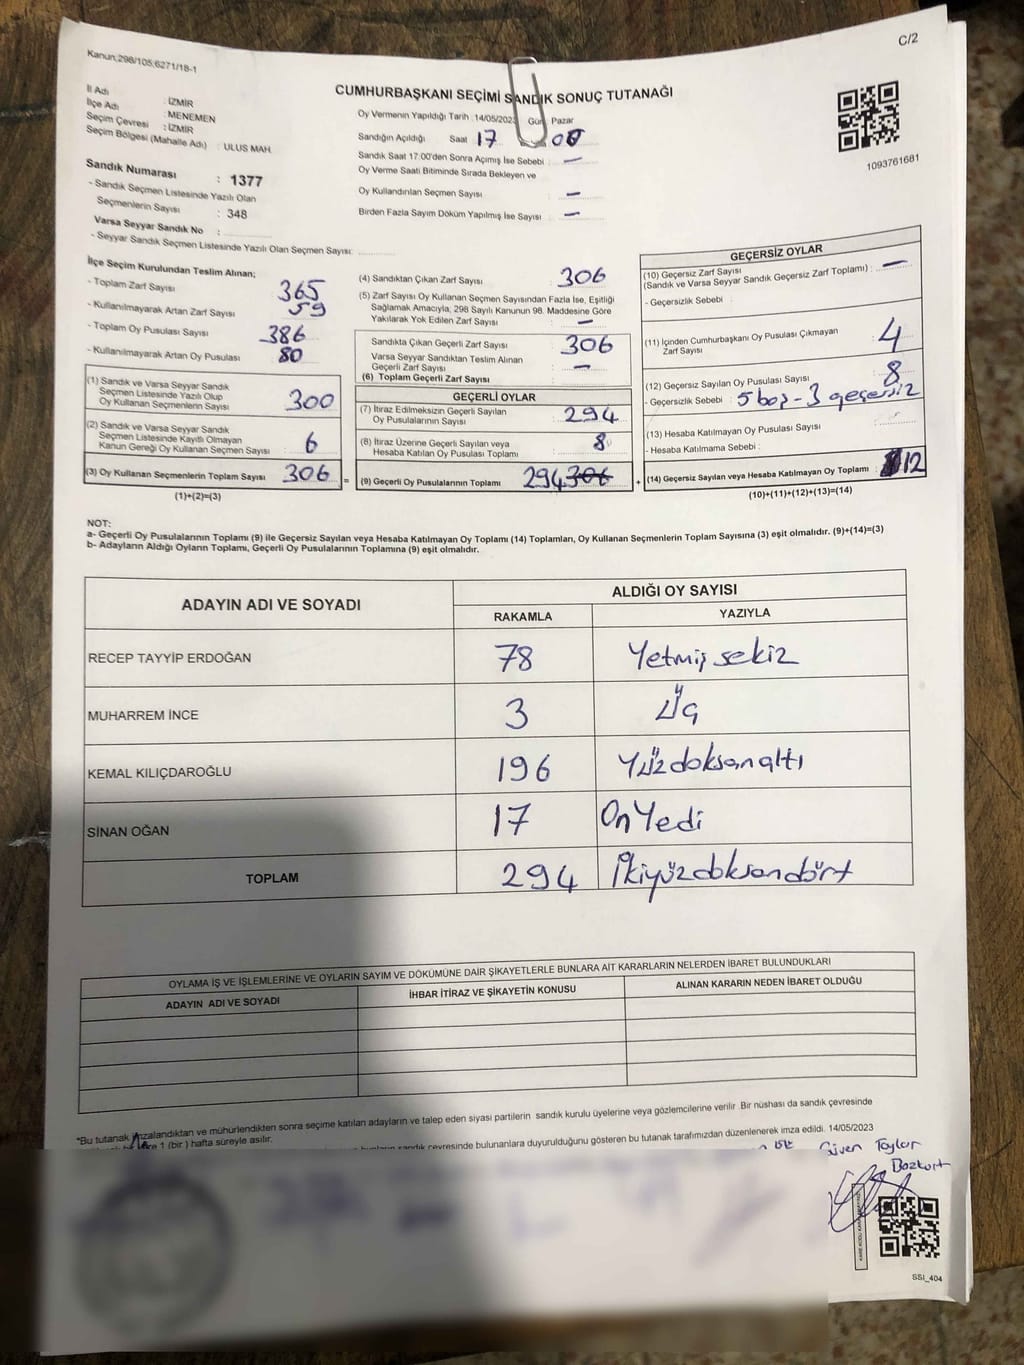 Kanun;298/105;6271/18-1
C/2
CUMHURBAŞKANI SEÇİMİ SANDIK SONUÇ TUTANAĞI
İl Adı : İZMİR
İlçe Adı : MENEMEN
Seçim Çevresi : İZMİR
Seçim Bölgesi (Mahalle Adı) : ULUS MAH.
Sandık Numarası : 1377
- Sandık Seçmen Listesinde Yazılı Olan
Seçmenlerin Sayısı : 348
Varsa Seyyar Sandık No :
- Seyyar Sandık Seçmen Listesinde Yazılı Olan Seçmen Sayısı:
Oy Vermenin Yapıldığı Tarih : 14/05/2023 Gün: Pazar
Sandığın Açıldığı Saat 17 00
Sandık Saat 17:00'den Sonra Açımış İse Sebebi : —
Oy Verme Saati Bitiminde Sırada Bekleyen ve
Oy Kullandırılan Seçmen Sayısı : —
Birden Fazla Sayım Döküm Yapılmış İse Sayısı : —
1093761681
İlçe Seçim Kurulundan Teslim Alınan;
- Toplam Zarf Sayısı 365
- Kullanılmayarak Artan Zarf Sayısı 59
- Toplam Oy Pusulası Sayısı 386
- Kullanılmayarak Artan Oy Pusulası 80
(1) Sandık ve Varsa Seyyar Sandık
Seçmen Listesinde Yazılı Olup
Oy Kullanan Seçmenlerin Sayısı : 300
(2) Sandık ve Varsa Seyyar Sandık
Seçmen Listesinde Kayıtlı Olmayan
Kanun Gereği Oy Kullanan Seçmen Sayısı : 6
(3) Oy Kullanan Seçmenlerin Toplam Sayısı : 306 =
(1)+(2)=(3)
(4) Sandıktan Çıkan Zarf Sayısı : 306
(5) Zarf Sayısı Oy Kullanan Seçmen Sayısından Fazla İse, Eşitliği
Sağlamak Amacıyla, 298 Sayılı Kanunun 98. Maddesine Göre
Yakılarak Yok Edilen Zarf Sayısı : —
Sandıkta Çıkan Geçerli Zarf Sayısı : 306
Varsa Seyyar Sandıktan Teslim Alınan
Geçerli Zarf Sayısı : —
(6) Toplam Geçerli Zarf Sayısı :
GEÇERLİ OYLAR
(7) İtiraz Edilmeksizin Geçerli Sayılan
Oy Pusulalarının Sayısı : 294
(8) İtiraz Üzerine Geçerli Sayılan veya
Hesaba Katılan Oy Pusulası Toplamı : 8
(9) Geçerli Oy Pusulalarının Toplamı : 294 306 +
GEÇERSİZ OYLAR
(10) Geçersiz Zarf Sayısı
(Sandık ve Varsa Seyyar Sandık Geçersiz Zarf Toplamı) : —
- Geçersizlik Sebebi :
(11) İçinden Cumhurbaşkanı Oy Pusulası Çıkmayan
Zarf Sayısı : 4
(12) Geçersiz Sayılan Oy Pusulası Sayısı : 8
- Geçersizlik Sebebi : 5 boş - 3 geçersiz
(13) Hesaba Katılmayan Oy Pusulası Sayısı :
- Hesaba Katılmama Sebebi :
(14) Geçersiz Sayılan veya Hesaba Katılmayan Oy Toplamı : 12
(10)+(11)+(12)+(13)=(14)
NOT:
a- Geçerli Oy Pusulalarının Toplamı (9) ile Geçersiz Sayılan veya Hesaba Katılmayan Oy Toplamı (14) Toplamları, Oy Kullanan Seçmenlerin Toplam Sayısına (3) eşit olmalıdır. (9)+(14)=(3)
b- Adayların Aldığı Oyların Toplamı, Geçerli Oy Pusulalarının Toplamına (9) eşit olmalıdır.
ADAYIN ADI VE SOYADI ALDIĞI OY SAYISI
RAKAMLA YAZIYLA
RECEP TAYYİP ERDOĞAN 78 Yetmiş sekiz
MUHARREM İNCE 3 Üç
KEMAL KILIÇDAROĞLU 196 Yüzdoksanaltı
SİNAN OĞAN 17 OnYedi
TOPLAM 294 İkiyüzdoksandört
OYLAMA İŞ VE İŞLEMLERİNE VE OYLARIN SAYIM VE DÖKÜMÜNE DAİR ŞİKAYETLERLE BUNLARA AİT KARARLARIN NELERDEN İBARET BULUNDUKLARI
ADAYIN ADI VE SOYADI İHBAR İTİRAZ VE ŞİKAYETİN KONUSU ALINAN KARARIN NEDEN İBARET OLDUĞU
*Bu tutanak imzalandıktan ve mühürlendikten sonra seçime katılan adayların ve talep eden siyasi partilerin sandık kurulu üyelerine veya gözlemcilerine verilir. Bir nüshası da sandık çevresinde
1 (bir) hafta süreyle asılır.
sandık çevresinde bulunanlara duyurulduğunu gösteren bu tutanak tarafımızdan düzenlenerek imza edildi. 14/05/2023
Güven Taylar
Bozkurt
SSI_404